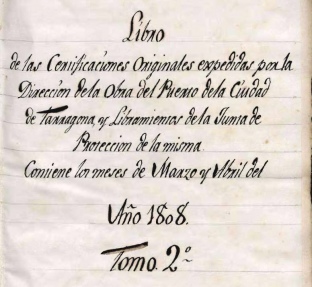 Libro
de las Certificaciones Originales expedidas por la
Direccion de la Obra del Puerto de la Ciudad
de Tarragona, y Libramientos de la Junta de
Proteccion de la misma
Contiene los meses de Marzo y Abril del
Año 1808.
Tomo. 2º